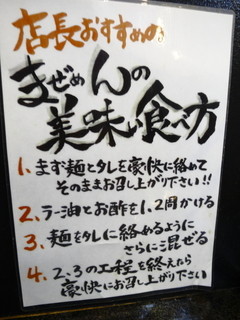 店長おすすめの
まぜめんの
美味い食べ方
1. まず麺とタレを豪快に絡めて
そのままお召し上がり下さい!!
2. ラー油とお酢を1、2周かける
3. 麺をタレに絡めるように
さらに混ぜる
4. 2、3の工程を終えたら
豪快にお召し上がり下さい